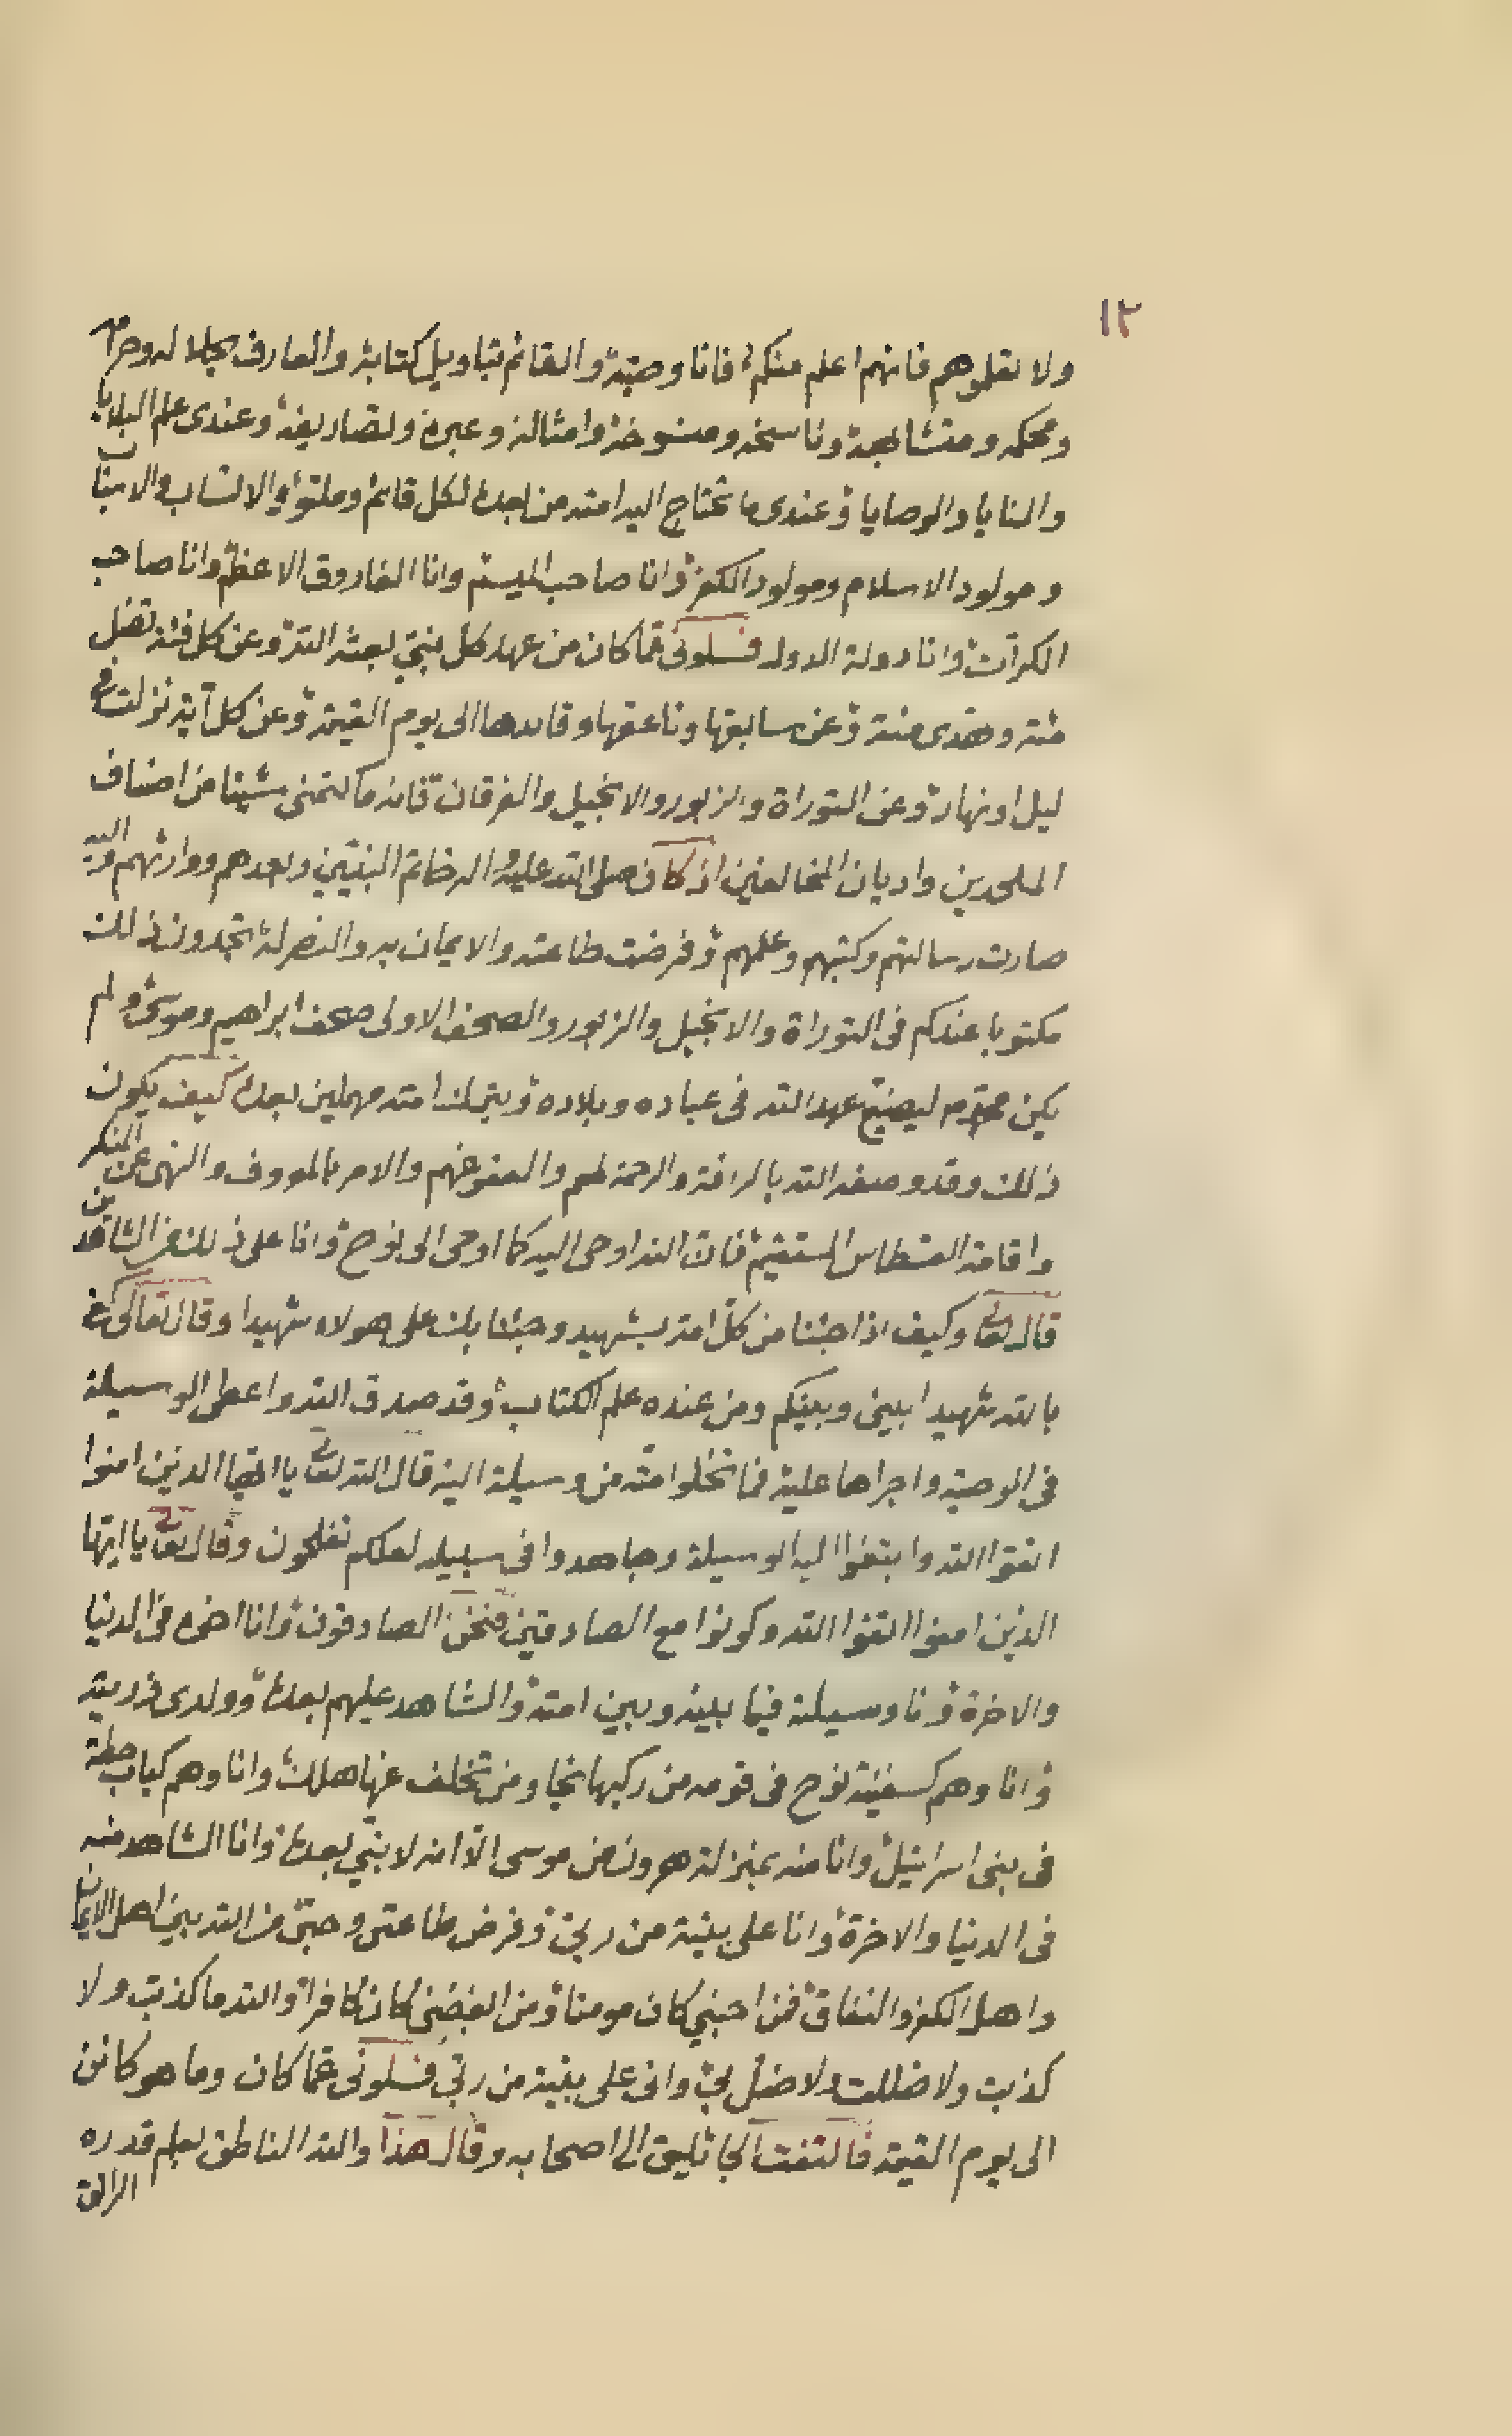 ١٢
ولا تعلموهم فانهم اعلم منكم فانا وصيه والقائم بتاويل كتابه والعارف بحلاله وحرامه
ومحكمه ومتشابهه وناسخه ومنسوخه وامثاله وعبره وتصاريفه وعندى علم البلايا
والمنايا والوصايا وعندى ما تحتاج اليه امته من بعده لكل قائم وملتو والانساب والاسباب
ومولود الاسلام ومولود الكفر وانا صاحب الميسم وانا الفاروق الاعظم وانا صاحب
الكرات وانا دولة الدول فسلونى عما كان من عهد كل نبي بعثه الله وعن كل فئة تضل
مئة وتهدى مئة وعن سابقها وناعقها وقايدها الى يوم القيمة وعن كل آية نزلت فى
ليل او نهار وعن التوراة والزبور والانجيل والفرقان فانه ما كتمنى شيئا من اصناف
الملحدين واديان المخالفين اذ كان صلى الله عليه واله خاتم النبيين وبعدهم ووارثهم واليه
صارت رسالتهم وكتبهم وعلمهم وفرضت طاعته والايمان به والنصر له تجدون ذلك
مكتوبا عندكم فى التوراة والانجيل والزبور والصحف الاولى صحف ابراهيم وموسى ولم
يكن محمد ليضيع عهد الله فى عباده وبلاده ويترك امته مهملين بعده كيف يكون
ذلك وقد وصفه الله بالرافة والرحمة لهم والعفو عنهم والامر بالمعروف والنهى عن المنكر
واقامة القسطاس المستقيم فان الله اوحى اليه كما اوحى الى نوح وانا على ذلك من الشاهدين
قال تعالى وكيف اذا جئنا من كل امة بشهيد وجئنا بك على هولاء شهيدا وقال تعالى كفى
بالله شهيدا بينى وبينكم ومن عنده علم الكتاب وقد صدق الله واعطى الوسيلة
فى الوصية واجراها عليه فما تخلوا منه من وسيلة اليه قال الله تعالى يا ايها الذين امنوا
اتقوا الله وابتغوا اليه الوسيلة وجاهدوا فى سبيله لعلكم تفلحون وقال تعالى يا ايها
الذين امنوا اتقوا الله وكونوا مع الصادقين فنحن الصادقون وانا اخوه فى الدنيا
والاخرة وانا وسيلة فيما بينه وبين امته والشاهد عليهم بعده وولدى ذريته
وانا وهم كسفينة نوح فى قومه من ركبها نجا ومن تخلف عنها هلك وانا وهم كباب حطة
فى بنى اسرائيل وانا منه بمنزلة هرون من موسى الا انه لا نبي بعده وانا الشاهد منه
فى الدنيا والاخرة وانا على بينة من ربى وفرض طاعتى وحبى من الله بين اهل الايمان
واهل الكفر والنفاق فمن احبنى كان مومنا ومن ابغضنى كان كافرا والله ما كذبت ولا
كذبت ولا ضللت ولا ضل بى وانى على بينة من ربى فسلونى عما كان وما هو كائن
الى يوم القيمة فالتفت الجاثليق الى اصحابه وقال هذا والله الناطق بعلم قدره
الراتق